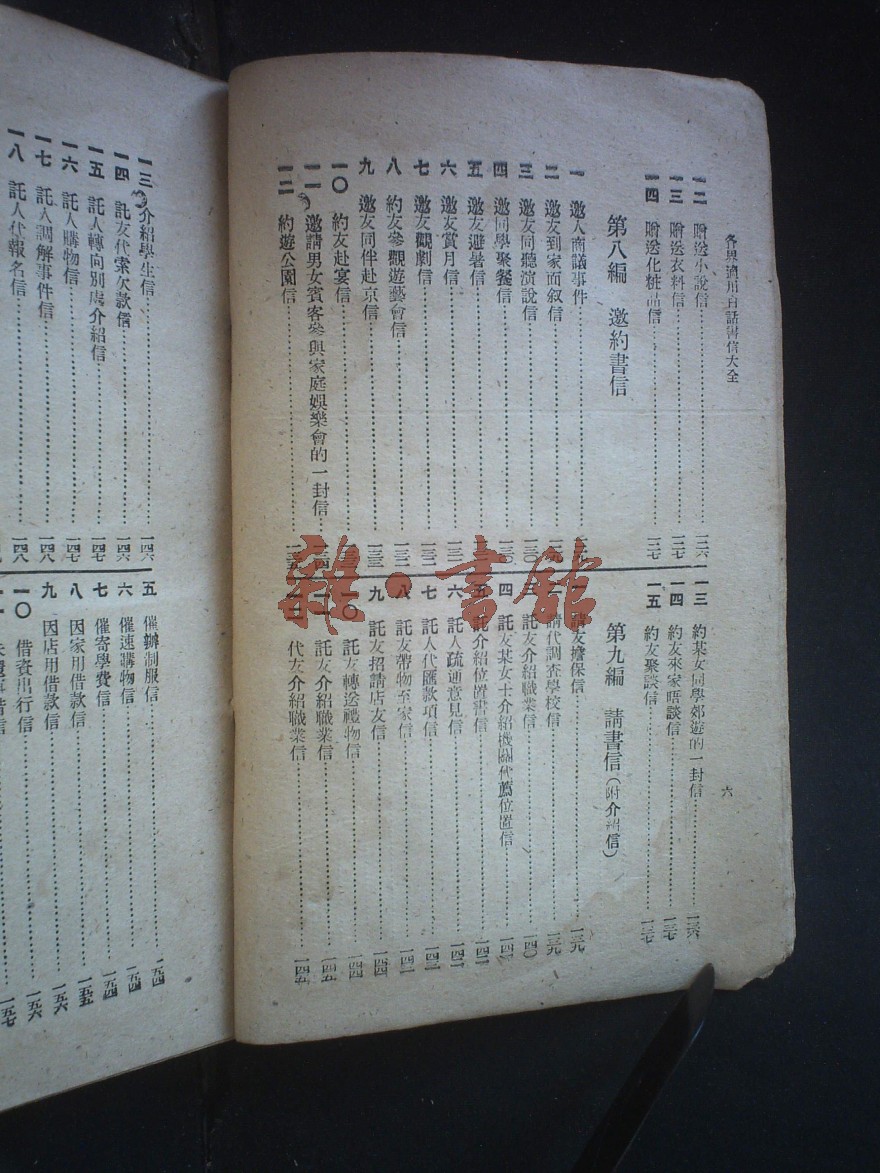 各界適用白話書信大全
六
一二 贈送小說信 一二六
一三 贈送衣料信 一二七
一四 贈送化粧品信 一二七
第八編 邀約書信
一 邀人商議事件
二 邀友到家面叙信
三 邀友同聽演說信 一三〇
四 邀同學聚餐信 一三〇
五 邀友避暑信 一三一
六 邀友賞月信 一三一
七 邀友觀劇信 一三二
八 約友參觀遊藝會信 一三二
九 邀友同伴赴京信 一三三
一〇 約友赴宴信
一一 邀請男女賓客參與家庭娛樂會的一封信
一二 約遊公園信
一三 約某女同學郊遊的一封信 一三六
一四 約友來家晤談信 一三七
一五 約友聚談信 一三七
第九編 請書信(附介紹信)
請友擔保信 一三九
請代調查學校信 一三九
託友介紹職業信 一四〇
四 託友某女士介紹機關代薦位置信 一四一
五 託介紹位置書信 一四一
六 託人疏通意見信 一四一
七 託人代匯款項信 一四二
八 託友帶物至家信 一四二
九 託友招請店友信 一四四
一〇 託友轉送禮物信 一四四
託友介紹職業信 一四五
代友介紹職業信 一四五
一三 介紹學生信 一四六
一四 託友代索欠款信 一四六
一五 託人轉向別處介紹信 一四七
一六 託人購物信 一四七
一七 託人調解事件信 一四八
一八 託人代報名信 一四八
五 催辦制服信 一五四
六 催速購物信 一五四
七 催寄學費信 一五四
八 因家用借款信 一五五
九 因店用借款信 一五六
一〇 借資出行信 一五六
一五七
雜·書館